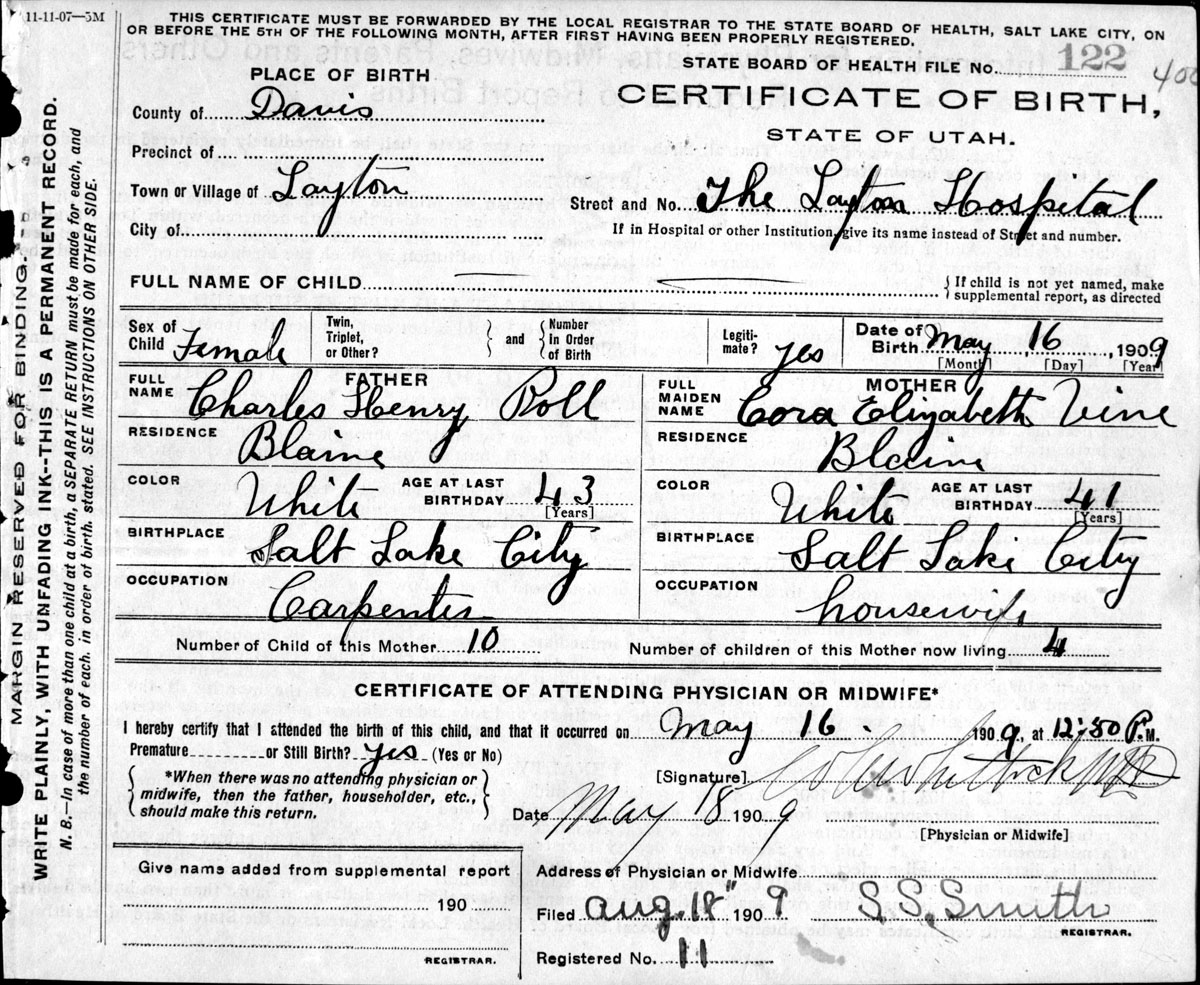 11-11-07—5M
THIS CERTIFICATE MUST BE FORWARDED BY THE LOCAL REGISTRAR TO THE STATE BOARD OF HEALTH, SALT LAKE CITY, ON
OR BEFORE THE 5TH OF THE FOLLOWING MONTH, AFTER FIRST HAVING BEEN PROPERLY REGISTERED.
STATE BOARD OF HEALTH FILE No. 122
400
PLACE OF BIRTH
CERTIFICATE OF BIRTH,
STATE OF UTAH.
County of Davis
Precinct of
Town or Village of Layton
Street and No. The Layton Hospital
City of
If in Hospital or other Institution, give its name instead of Street and number.
FULL NAME OF CHILD
If child is not yet named, make
supplemental report, as directed
Sex of Child Female
Twin, Triplet, or Other?
and
Number In Order of Birth
Legitimate? yes
Date of Birth May 16, 1909
[Month] [Day] [Year]
FATHER
FULL NAME Charles Henry Roll
MOTHER
FULL MAIDEN NAME Cora Elizabeth Vine
RESIDENCE Blaine
RESIDENCE Blaine
COLOR White AGE AT LAST BIRTHDAY 43 [Years]
COLOR White AGE AT LAST BIRTHDAY 41 [Years]
BIRTHPLACE Salt Lake City
BIRTHPLACE Salt Lake City
OCCUPATION Carpenter
OCCUPATION housewife
Number of Child of this Mother 10
Number of children of this Mother now living 4
CERTIFICATE OF ATTENDING PHYSICIAN OR MIDWIFE*
I hereby certify that I attended the birth of this child, and that it occurred on May 16. 1909, at 12:50 P.M.
Premature or Still Birth? yes (Yes or No)
*When there was no attending physician or
midwife, then the father, householder, etc.,
should make this return.
[Signature]
Date May 18 1909
[Physician or Midwife]
Give name added from supplemental report
190
REGISTRAR.
Address of Physician or Midwife
Filed Aug. 18" 1909 S.S. Smith
REGISTRAR.
Registered No. 11
MARGIN RESERVED FOR BINDING.
WRITE PLAINLY, WITH UNFADING INK--THIS IS A PERMANENT RECORD.
N. B.—In case of more than one child at a birth, a SEPARATE RETURN must be made for each, and
the number of each, in order of birth, stated. SEE INSTRUCTIONS ON OTHER SIDE.